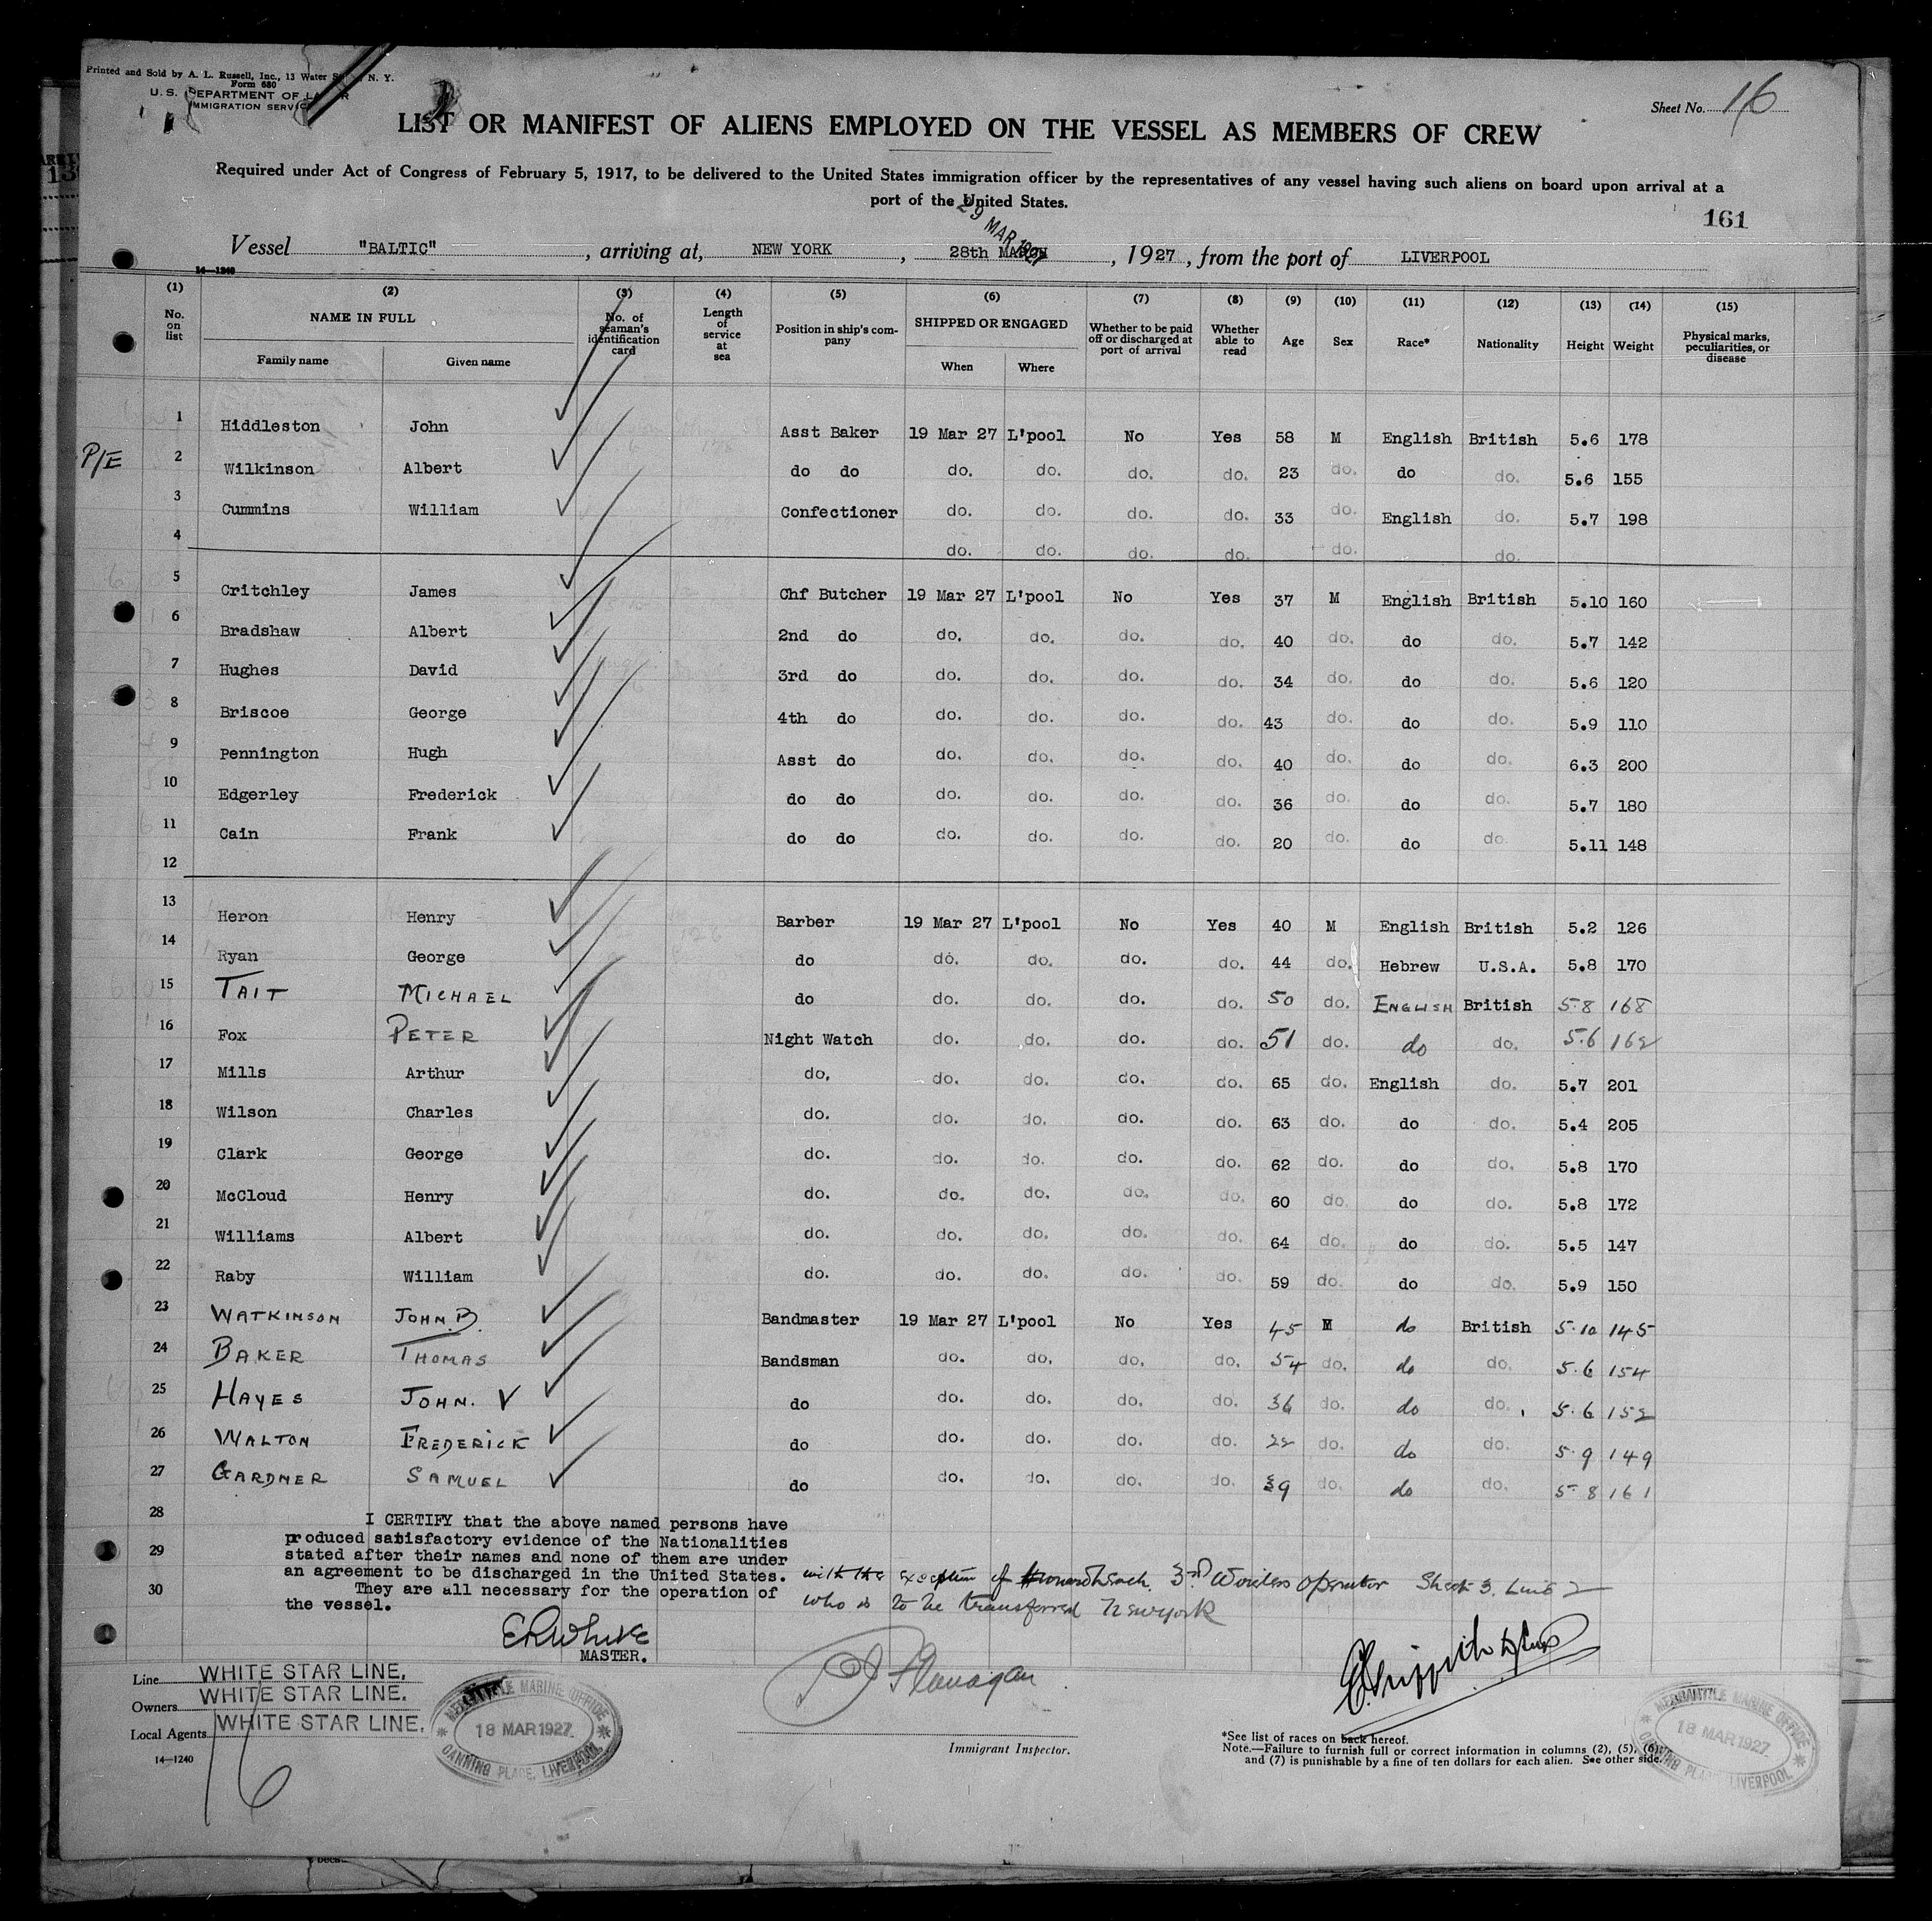 Printed and Sold by A. L. Russell, Inc., 13 Water St., N. Y.
Form 680
U. S. DEPARTMENT OF LABOR
IMMIGRATION SERVICE
Sheet No. 16
LIST OR MANIFEST OF ALIENS EMPLOYED ON THE VESSEL AS MEMBERS OF CREW
Required under Act of Congress of February 5, 1917, to be delivered to the United States immigration officer by the representatives of any vessel having such aliens on board upon arrival at a
port of the United States.
161
29 MAR 1927
Vessel "BALTIC", arriving at, NEW YORK, 28th MARCH, 1927, from the port of LIVERPOOL
14—1240
(1) (2) (3) (4) (5) (6) (7) (8) (9) (10) (11) (12) (13) (14) (15)
No. on list NAME IN FULL Family name Given name No. of seaman's identification card Length of service at sea Position in ship's company SHIPPED OR ENGAGED When Where Whether to be paid off or discharged at port of arrival Whether able to read Age Sex Race* Nationality Height Weight Physical marks, peculiarities, or disease
1 Hiddleston John Asst Baker 19 Mar 27 L'pool No Yes 58 M English British 5.6 178
P/E 2 Wilkinson Albert do do do. do. do. do. 23 do. do do. 5.6 155
3 Cummins William Confectioner do. do. do. do. 33 do. English do. 5.7 198
4 do. do. do. do. do. do.
5 Critchley James Chf Butcher 19 Mar 27 L'pool No Yes 37 M English British 5.10 160
6 Bradshaw Albert 2nd do do. do. do. do. 40 do. do do. 5.7 142
7 Hughes David 3rd do do. do. do. do. 34 do. do do. 5.6 120
8 Briscoe George 4th do do. do. do. do. 43 do. do do. 5.9 110
9 Pennington Hugh Asst do do. do. do. do. 40 do. do do. 6.3 200
10 Edgerley Frederick do do do. do. do. do. 36 do. do do. 5.7 180
11 Cain Frank do do do. do. do. do. 20 do. do do. 5.11 148
12
13 Heron Henry Barber 19 Mar 27 L'pool No Yes 40 M English British 5.2 126
14 Ryan George do do. do. do. do. 44 do. Hebrew U.S.A. 5.8 170
15 TAIT MICHAEL do do. do. do. do. 50 do. ENGLISH British 5.8 168
16 Fox PETER Night Watch do. do. do. do. 51 do. do do. 5.6 162
17 Mills Arthur do. do. do. do. do. 65 do. English do. 5.7 201
18 Wilson Charles do. do. do. do. do. 63 do. do do. 5.4 205
19 Clark George do. do. do. do. do. 62 do. do do. 5.8 170
20 McCloud Henry do. do. do. do. do. 60 do. do do. 5.8 172
21 Williams Albert do. do. do. do. do. 64 do. do do. 5.5 147
22 Raby William do. do. do. do. do. 59 do. do do. 5.9 150
23 WATKINSON JOHN. B. Bandmaster 19 Mar 27 L'pool No Yes 45 M do British 5.10 145
24 BAKER THOMAS Bandsman do. do. do. do. 54 do. do do. 5.6 154
25 HAYES JOHN. V do do. do. do. do. 36 do. do do. 5.6 152
26 WALTON FREDERICK do do. do. do. do. 22 do. do do. 5.9 149
27 GARDNER SAMUEL do do. do. do. do. 39 do. do do. 5.8 161
28
29
30
I CERTIFY that the above named persons have
produced satisfactory evidence of the Nationalities
stated after their names and none of them are under
an agreement to be discharged in the United States. with the exception of 3rd Wireless Operator Sheet 3. Line 2
They are all necessary for the operation of
the vessel. who is to be transferred New York
E R White
MASTER.
Flanagan
Line WHITE STAR LINE.
Owners WHITE STAR LINE.
Local Agents WHITE STAR LINE.
14—1240
16
MERCANTILE MARINE OFFICE
18 MAR 1927
CANNING PLACE, LIVERPOOL
Immigrant Inspector.
*See list of races on back hereof.
Note.—Failure to furnish full or correct information in columns (2), (5), (6),
and (7) is punishable by a fine of ten dollars for each alien. See other side.
MERCANTILE MARINE OFFICE
18 MAR 1927
CANNING PLACE, LIVERPOOL